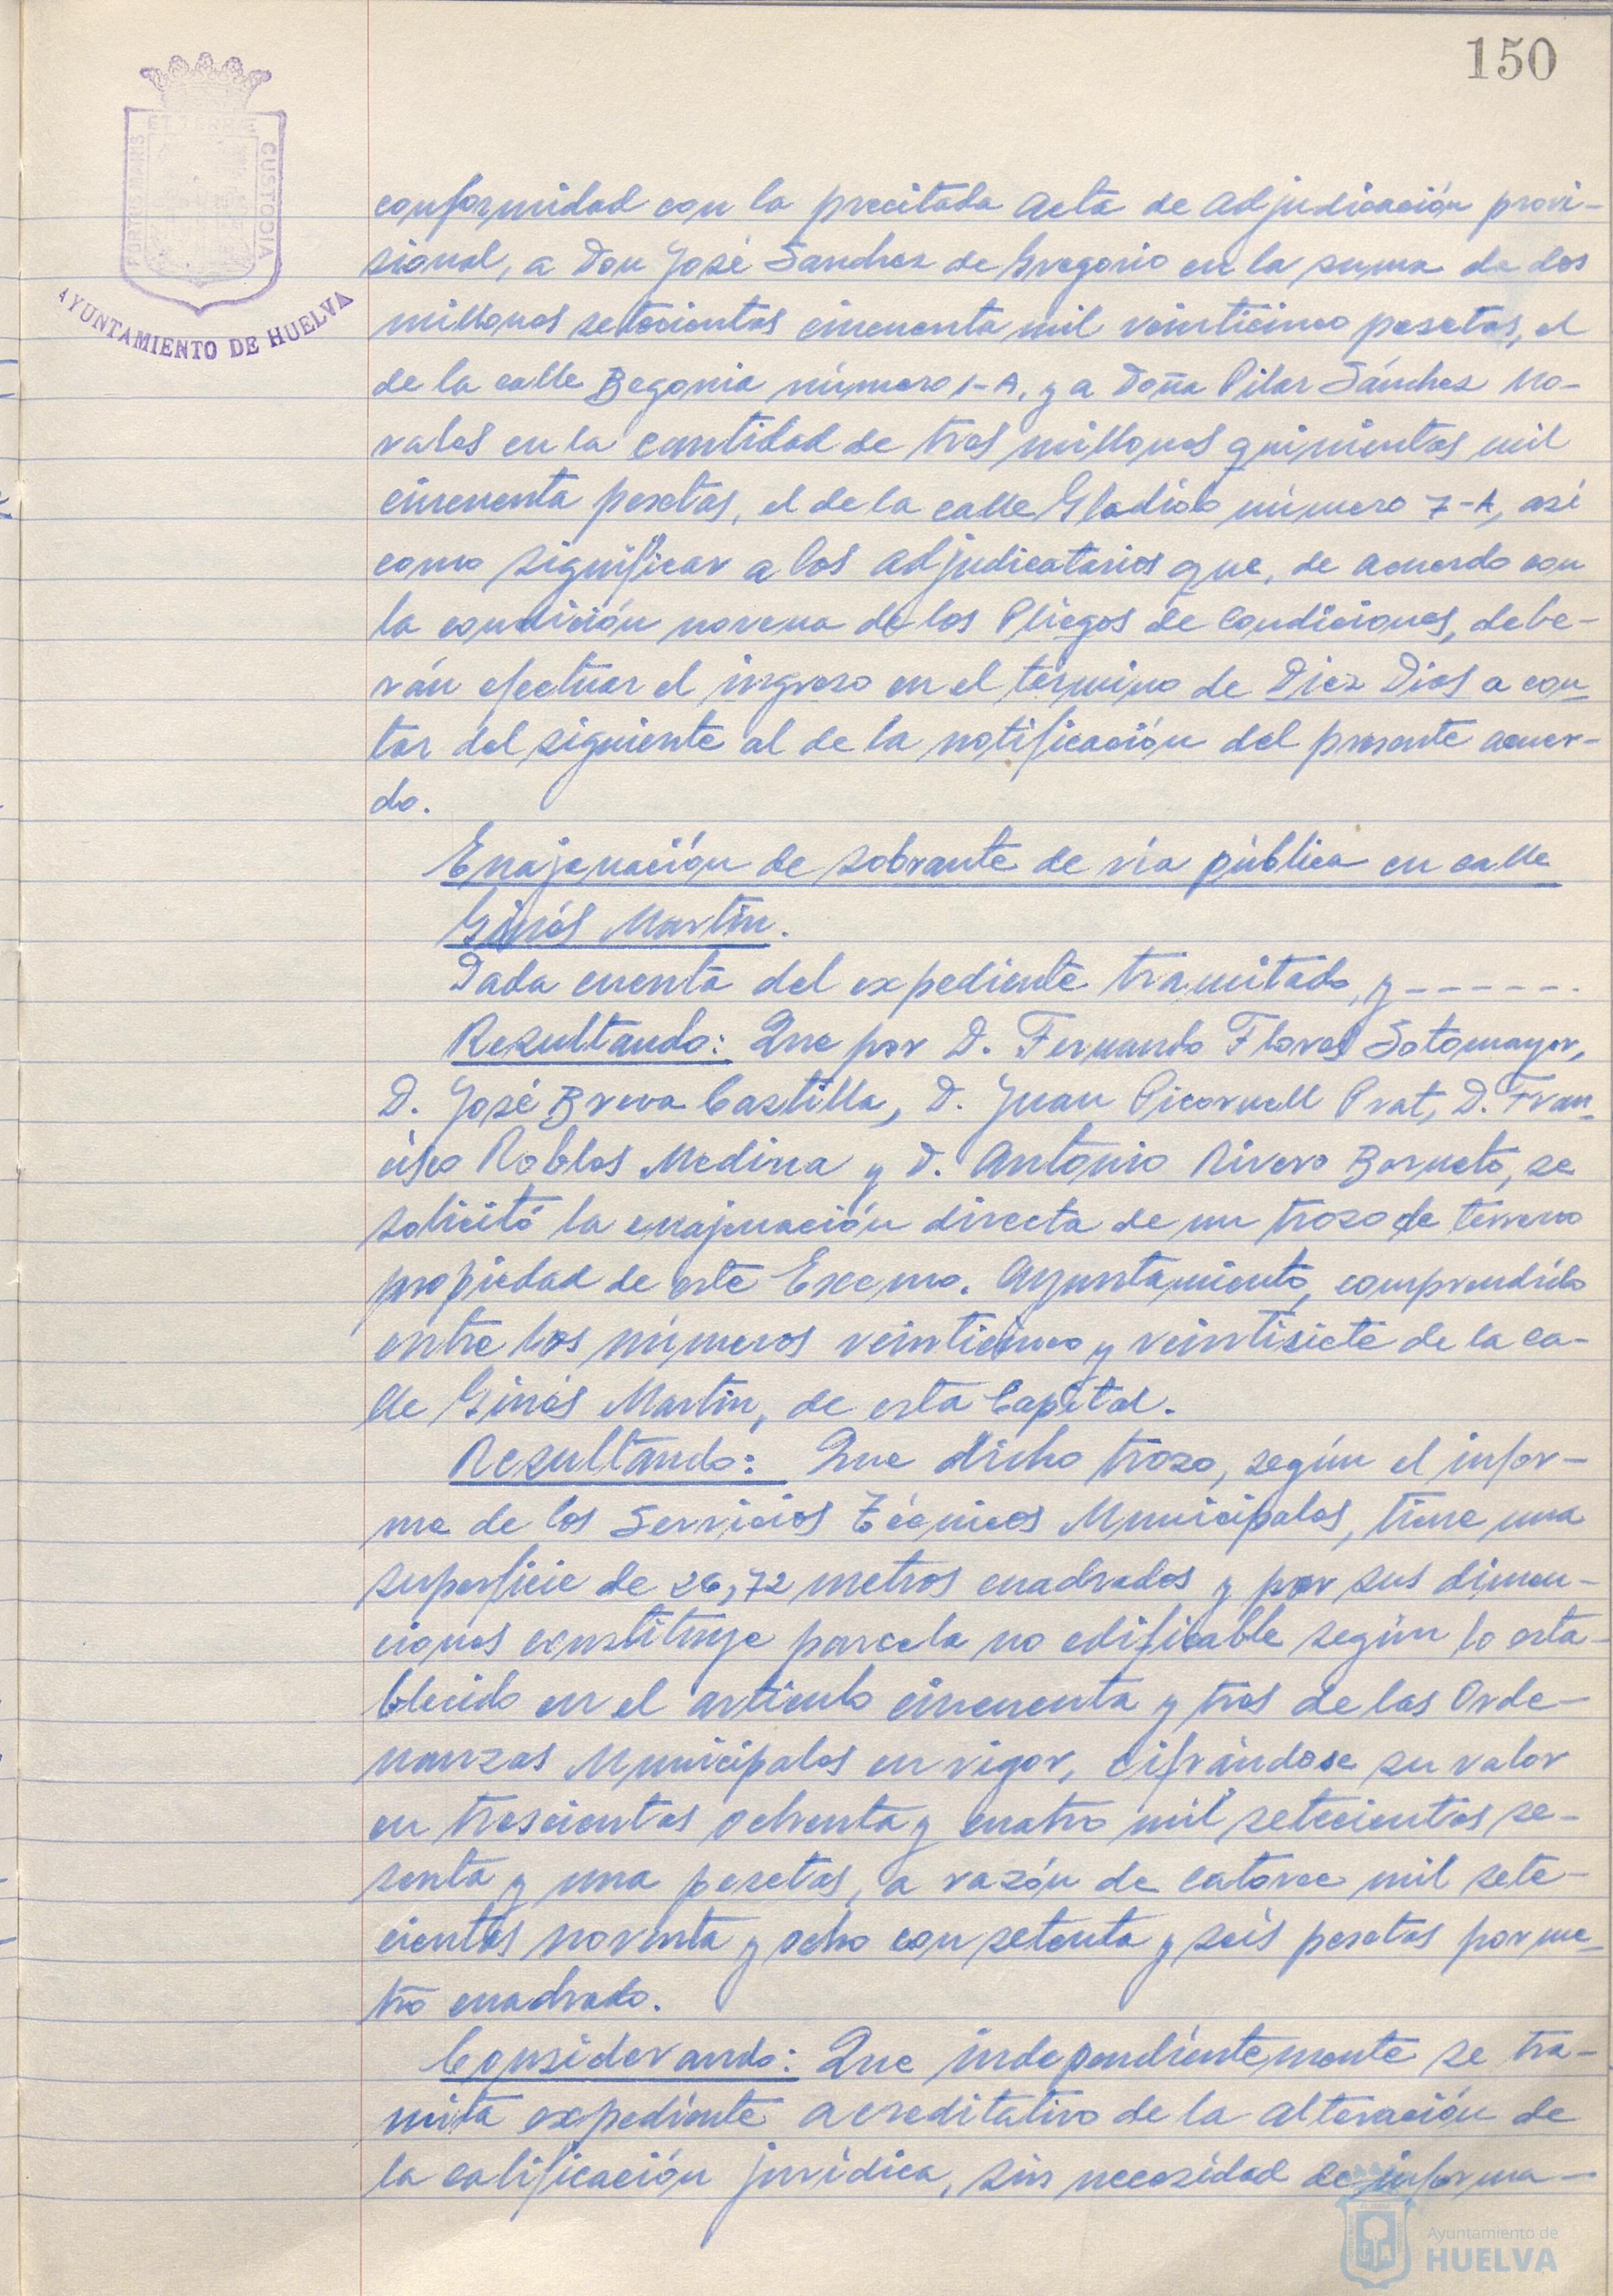 150
PORTUS MARIS
ET TERRAE
CUSTODIA
AYUNTAMIENTO DE HUELVA
conformidad con la precitada acta de adjudicación provi-
sional, a Don José Sanchez de Gregorio en la suma de dos
millones setecientas cincuenta mil veinticinco pesetas, el
de la calle Begonia número 1-A, y a Doña Pilar Sánchez No-
vales en la cantidad de tres millones quinientas mil
cincuenta pesetas, el de la calle Gladiolo número 7-A, asi
como significar a los adjudicatarios que, de acuerdo con
la condición novena de los Pliegos de Condiciones, debe-
rán efectuar el ingreso en el término de Diez Dias a con-
tar del siguiente al de la notificación del presente acuer-
do.
Enajenación de sobrante de vía pública en calle
Ginés Martín.
Dada cuenta del expediente tramitado, y ------.
Resultando: Que por D. Fernando Flores Sotomayor,
D. José Breva Castilla, D. Juan Picornell Prat, D. Fran-
cisco Robles Medina y D. Antonio Rivero Borneto, se
solicitó la enajenación directa de un trozo de terreno
propiedad de este Excmo. Ayuntamiento, comprendido
entre los números veinticinco y veintisiete de la ca-
lle Ginés Martín, de esta Capital.
Resultando: Que dicho trozo, según el infor-
me de los Servicios Técnicos Municipales, tiene una
superficie de 26,72 metros cuadrados y por sus dimen-
ciones constituye parcela no edificable según lo esta-
blecido en el artículo cincuenta y tres de las Orde-
nanzas Municipales en vigor, cifrándose su valor
en trescientas ochenta y cuatro mil setecientas se-
senta y una pesetas, a razón de catorce mil sete-
cientas noventa y ocho con setenta y seis pesetas por me-
tro cuadrado.
Considerando: Que independientemente se tra-
mita expediente acreditativo de la alteración de
la calificación jurídica, sin necesidad de informa-
Ayuntamiento de
HUELVA